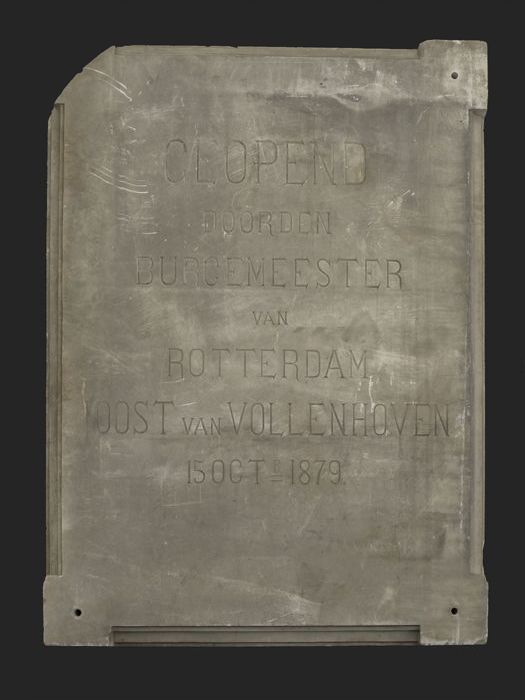 GEOPEND
DOOR DEN
BURGEMEESTER
VAN
ROTTERDAM
JOOST VAN VOLLENHOVEN
15 OCTR 1879.